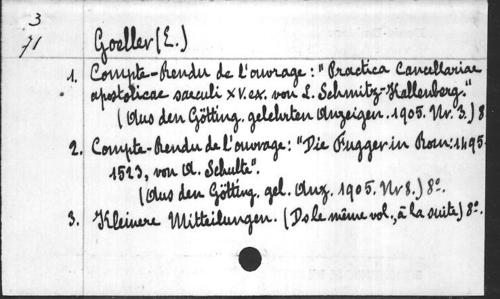 3
71
Goeller (E.)
1. Compte-Rendu de l'ouvrage: "Practica Cancellariae
apostolicae saeculi XV. ex. von L. Schmitz-Kallenberg"
(Aus den Götting. gelehrten Anzeigen. 1905. Nr. 3.) 8
2. Compte-Rendu de l'ouvrage: "Die Fugger in Rom: 1495-
1523, von A. Schulte".
(Aus den Götting. gel. Anz. 1905. Nr 8.) 8º.
3. Kleinere Mitteilungen. (Ds le même vol., à la suite) 8º.